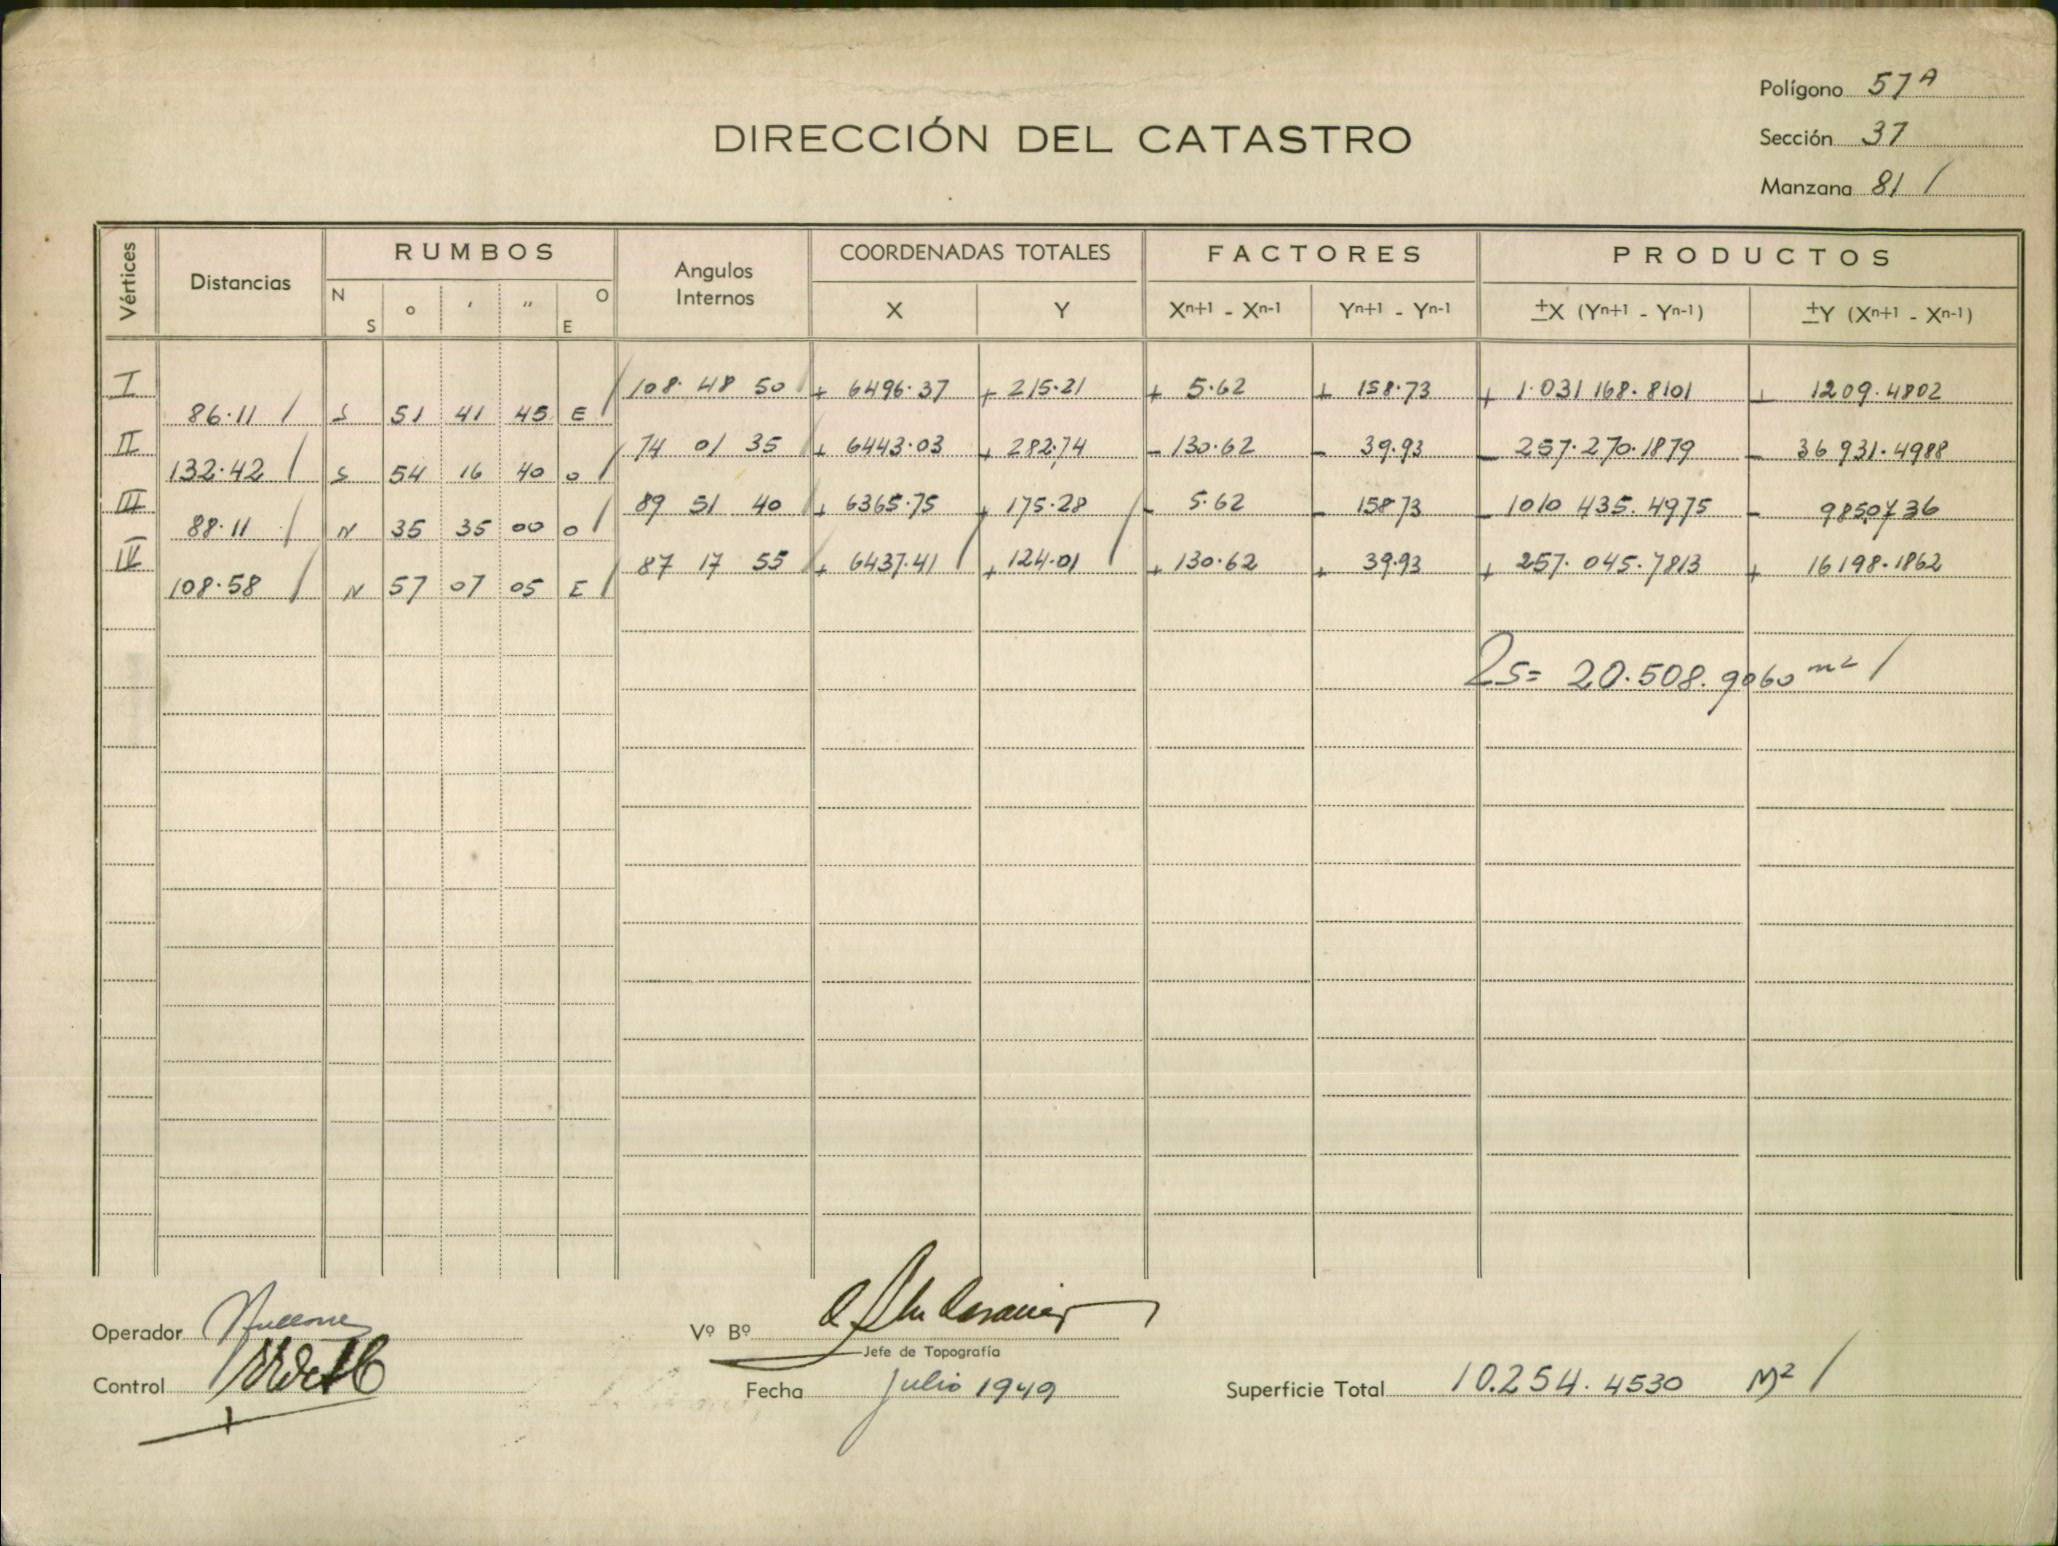 Polígono 57A
DIRECCIÓN DEL CATASTRO
Sección 37
Manzana 81 /
Vértices Distancias RUMBOS Angulos Internos COORDENADAS TOTALES FACTORES PRODUCTOS
N S ° ' " E O X Y Xn+1 - Xn-1 Yn+1 - Yn-1 ±X (Yn+1 - Yn-1) ±Y (Xn+1 - Xn-1)
I 108. 48 50 + 6496.37 + 215.21 + 5.62 + 158.73 + 1.031 168.8101 + 1209.4802
86.11 / S 51 41 45 E /
II 74 01 35 + 6443.03 + 282.74 - 130.62 - 39.93 - 257.270.1879 - 36 931.4988
132.42 / S 54 16 40 O /
III 89 51 40 + 6365.75 + 175.28 - 5.62 - 158.73 - 1010 435.4975 - 985.0736
88.11 / N 35 35 00 O /
IV 87 17 55 + 6437.41 + 124.01 + 130.62 + 39.93 + 257.045.7813 + 16198.1862
108.58 / N 57 07 05 E /
2S= 20.508.9060 m2 /
Operador
Vº Bº
Jefe de Topografía
Control
Fecha Julio 1949
Superficie Total 10.254.4530 M2 /